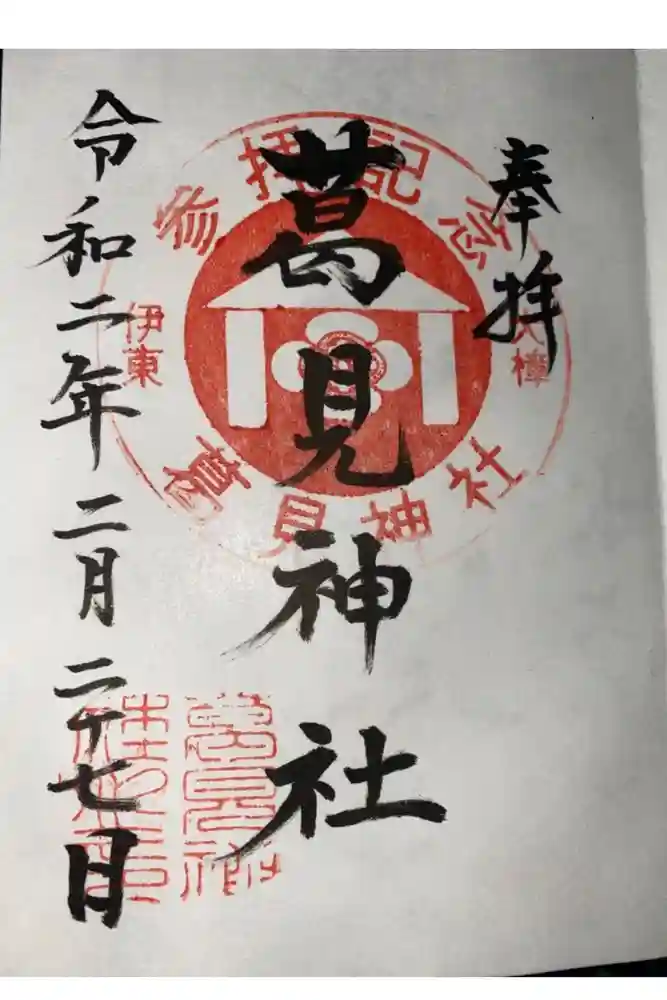 奉拝
葛見神社
令和二年二月二十七日
参拝記念
大樟
伊東
葛見神社